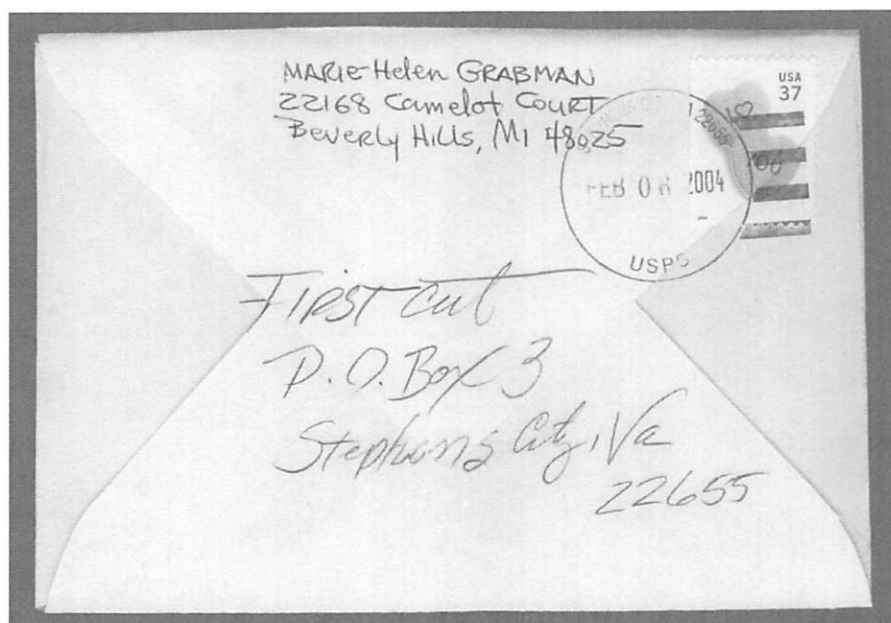 MARIE-Helen GRABMAN
22168 Camelot Court
Beverly Hills, MI 48025
USA
37
22655
FEB 06 2004
USPS
First Cut
P.O. Box 3
Stephens City, Va
22655